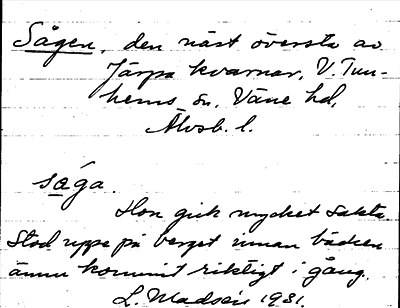 Sågen, den näst översta av
Järpa kvarnar, V. Tun-
hems sn. Väne hd,
Älvsb. l.
såga.
Hon gick mycket sakta.
Stod uppe på berget innan bäcken
ännu kommit riktigt i gång.
L. Madsén 1931.